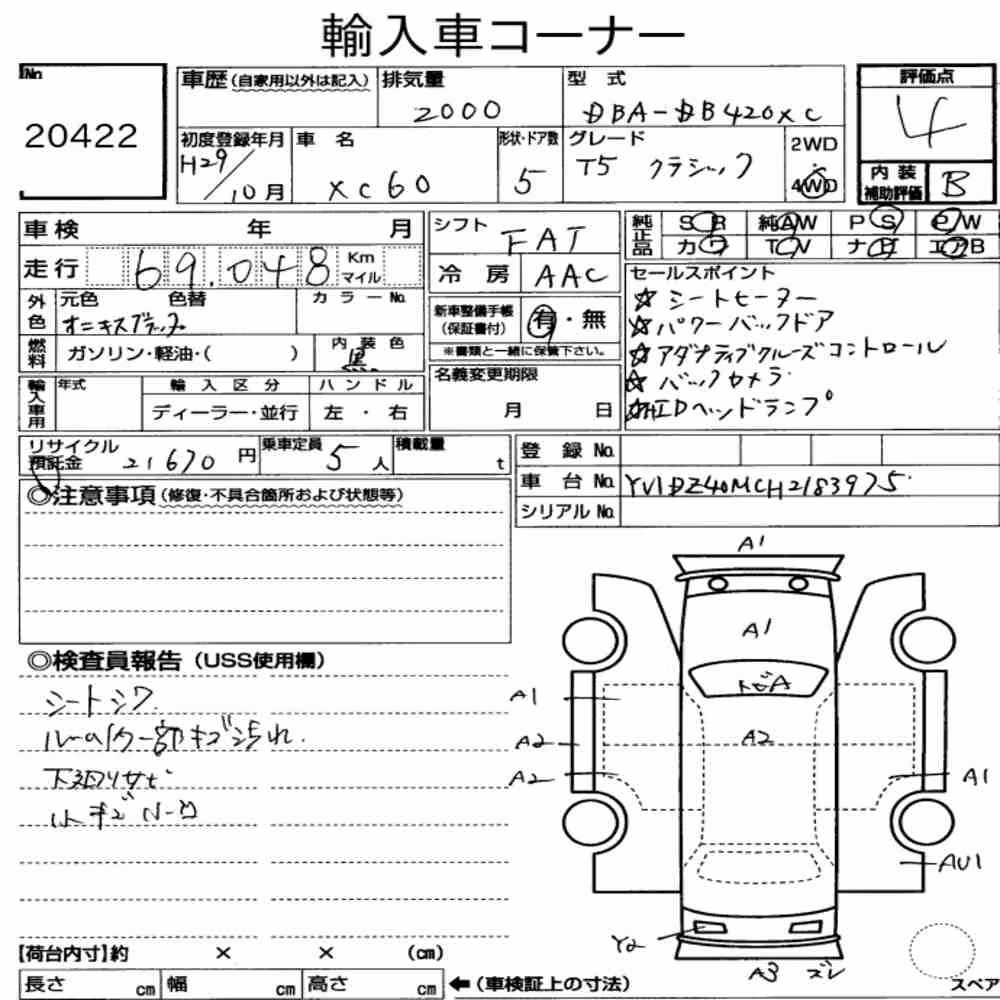 輸入車コーナー
No. 20422
車歴(自家用以外は記入) 排気量 2000 型 式 DBA-DB420XC 評価点 4
初度登録年月 H29/10月 車 名 XC60 形状・ドア数 5 グレード T5 クラシック 2WD・4WD 内装補助評価 B
車検 年 月 シフト FAT 純正品 SR 純AW PS P/W
走行 69.048 Km マイル 冷房 AAC カワ TV ナビ エアB
外色 元色 色替 オニキスブラック カラーNo. 新車整備手帳(保証書付) 有・無
※書類と一緒に保管下さい。
セールスポイント
☆ シートヒーター
☆ パワーバックドア
☆ アダプティブクルーズコントロール
☆ バックカメラ
☆ HIDヘッドランプ
燃料 ガソリン・軽油・( ) 内装色 黒
輸入車用 年式 輸入区分 ディーラー・並行 ハンドル 左・右
名義変更期限 月 日
リサイクル預託金 21670 円 乗車定員 5 人 積載量 t
登録No.
車台No. YV1DZ40MCH2183975
シリアルNo.
◎注意事項(修復・不具合箇所および状態等)
◎検査員報告(USS使用欄)
シートシワ
ルーム内一部キズ汚れ.
下廻りサビ
小キズ
A1
A1
トビA
A1
A2
A2
A2
A1
AU1
Y2
A3 ズレ
スペア
【荷台内寸】約 × × (cm)
長さ cm 幅 cm 高さ cm ←(車検証上の寸法)